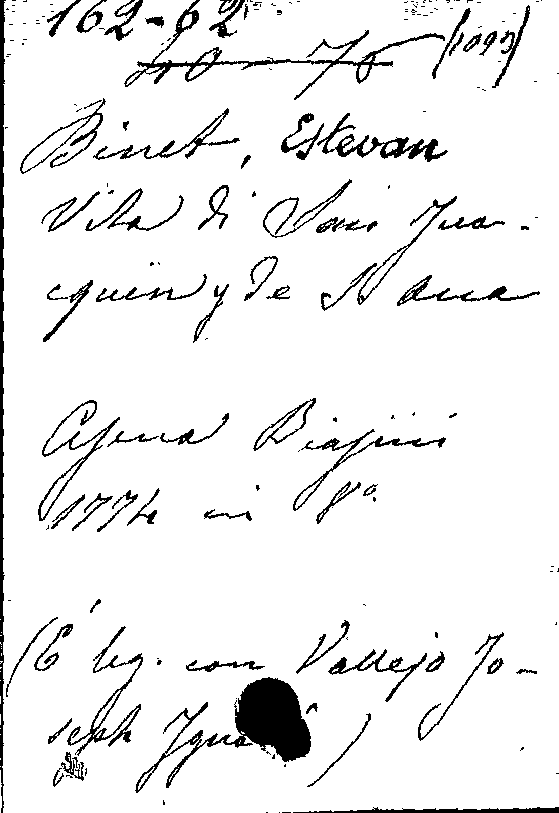 162-62
40 - 76 (1093)
Binet, Estevan
Vita di San Jua-
cquin y de S. Ana
Cesena Biasini
1774 in 8º
(È leg. con Vallejo Jo-
seph Igna )